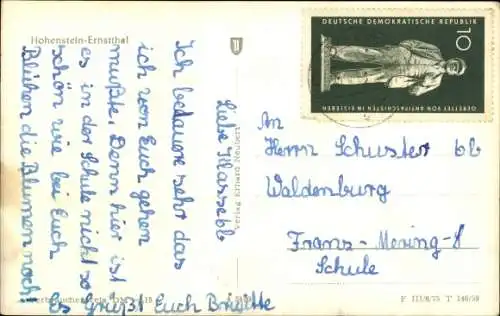 Hohenstein-Ernstthal
Liebe Klasse 6b
Ich bedaure sehr das
ich von Euch gehen
mußte. Denn hier ist
es in der Schule nicht so
schön wie bei Euch
Blühen die Blumen noch.
Es Grüßt Euch Brigitte
Verlag Erhard Neubert
DEUTSCHE DEMOKRATISCHE REPUBLIK
10
GERETTET VON ANTIFASCHISTEN IN EISLEBEN
An
Herrn Schuster 6b
Waldenburg
Franz-Mering-S
Schule
F III/8/75 T 146/58